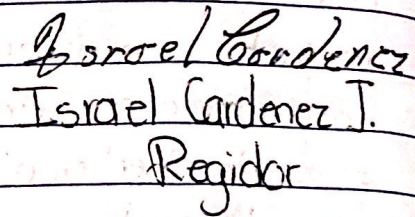 Israel Cardenez
Israel Cardenez J.
Regidor